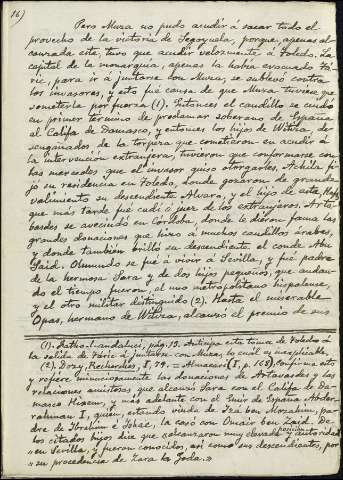 16)
Pero Muza no pudo acudir á sacar todo el
provecho de la victoria de Segoyuela, porque, apenas al-
canzada esta tuvo que acudir velozmente á Toledo. La
capital de la monarquía, apenas la hubo evacuado Tá-
ric, para ir á juntarse con Muza, se sublevó contra
los invasores, y esto fué causa de que Muza tuviese que
someterla por fuerza (1). Entonces el caudillo se cuidó
en primer término de proclamar soberano de España
al Califa de Damasco, y entonces los hijos de Witiza, de-
sengañados, de la torpeza que cometieron en acudir á
la intervención extranjera, tuvieron que conformarse con
las mercedes que el invasor quiso otorgarles. Achila fi-
jó su residencia en Toledo, donde gozaron de grande
valimiento su descendiente Alvaro, y el hijo de este
que más tarde fué cadí ó juez de los extranjeros. Arta-
basdes se avecindó en Córdoba, donde le dieron fama las
grandes donaciones que hizo á muchos caudillos árabes,
y donde también brilló su descendiente el conde Abu
Said. Olmundo se fué á vivir á Sevilla, y fué padre
de la hermosa Sara y de dos hijos pequeños, que andan-
do el tiempo fueron, el uno metropolitano hispalense,
y el otro militar distinguido (2). Hasta el miserable
Opas, hermano de Witiza, alcanzó el premio de sus
(1). Fatho-l-andaluci, pág. 13. Anticipa esta toma de Toledo á
la salida de Táric á juntarse con Muza, lo cuál es inexplicable.
(2). Dozy, Recherches, I, 79. = Almaccari (I, p. 168), confirma esto
y refiere minuciosamente las donaciones de Artavasdes y las
relaciones amistosas que alcanzó Sara con el Califa de Da-
masco Hixem, y más adelante con el Emir de España Abder-
rahman I, quien, estando viuda de Iza ben Mozahim, pa-
dre de Ibrahim é Ishac, la casó con Omair ben Zaid. De
los citados hijos dice que «alcanzaron muy elevada posición y autoridad
»en Sevilla, y fueron conocidos, así como sus descendientes, por
»su procedencia de Zara la Goda.»